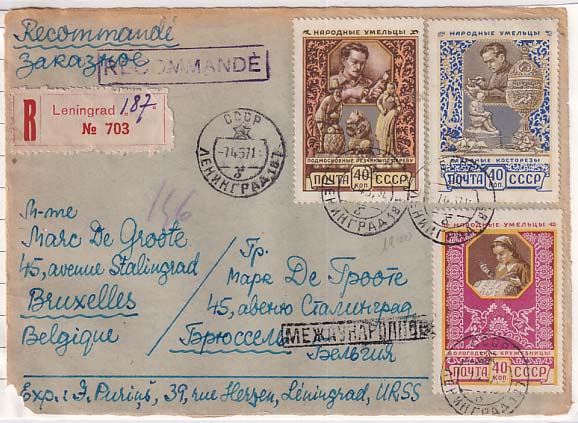 Recommandé
Заказное
RECOMMANDÉ
R
Leningrad 187
№ 703
СССР
-7.4.57
ЛЕНИНГРАД 187
196
M-me
Marc De Groote
45, avenue Stalingrad
Bruxelles
Belgique
Гр.
Марк Де Грооте
45, авеню Сталинград
Брюссель
Бельгия
МЕЖДУНАРОДНОЕ
Exp.: Э. Puriņš, 39, rue Herzen, Léningrad, URSS
НАРОДНЫЕ УМЕЛЬЦЫ
ПОДМОСКОВНЫЕ РЕЗЧИКИ ПО ДЕРЕВУ
ПОЧТА 40 КОП СССР
НАРОДНЫЕ УМЕЛЬЦЫ
КОСТОРЕЗЫ
ПОЧТА 40 КОП СССР
НАРОДНЫЕ УМЕЛЬЦЫ
ВОЛОГОДСКИЕ КРУЖЕВНИЦЫ
ПОЧТА 40 КОП СССР
ЛЕНИНГРАД
ЛЕНИНГРАД
ЛЕНИНГРАД